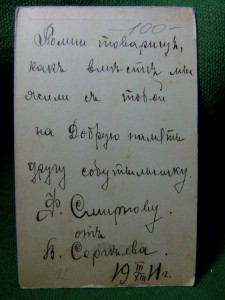 -100-
Помни товарищъ,
какъ вмѣстѣ мы
жили съ тобой
на Добрую память
другу собутыльнику.
Ф. Смирнову.
отъ
В. Сергѣева.
19 III/XIII 11 г.